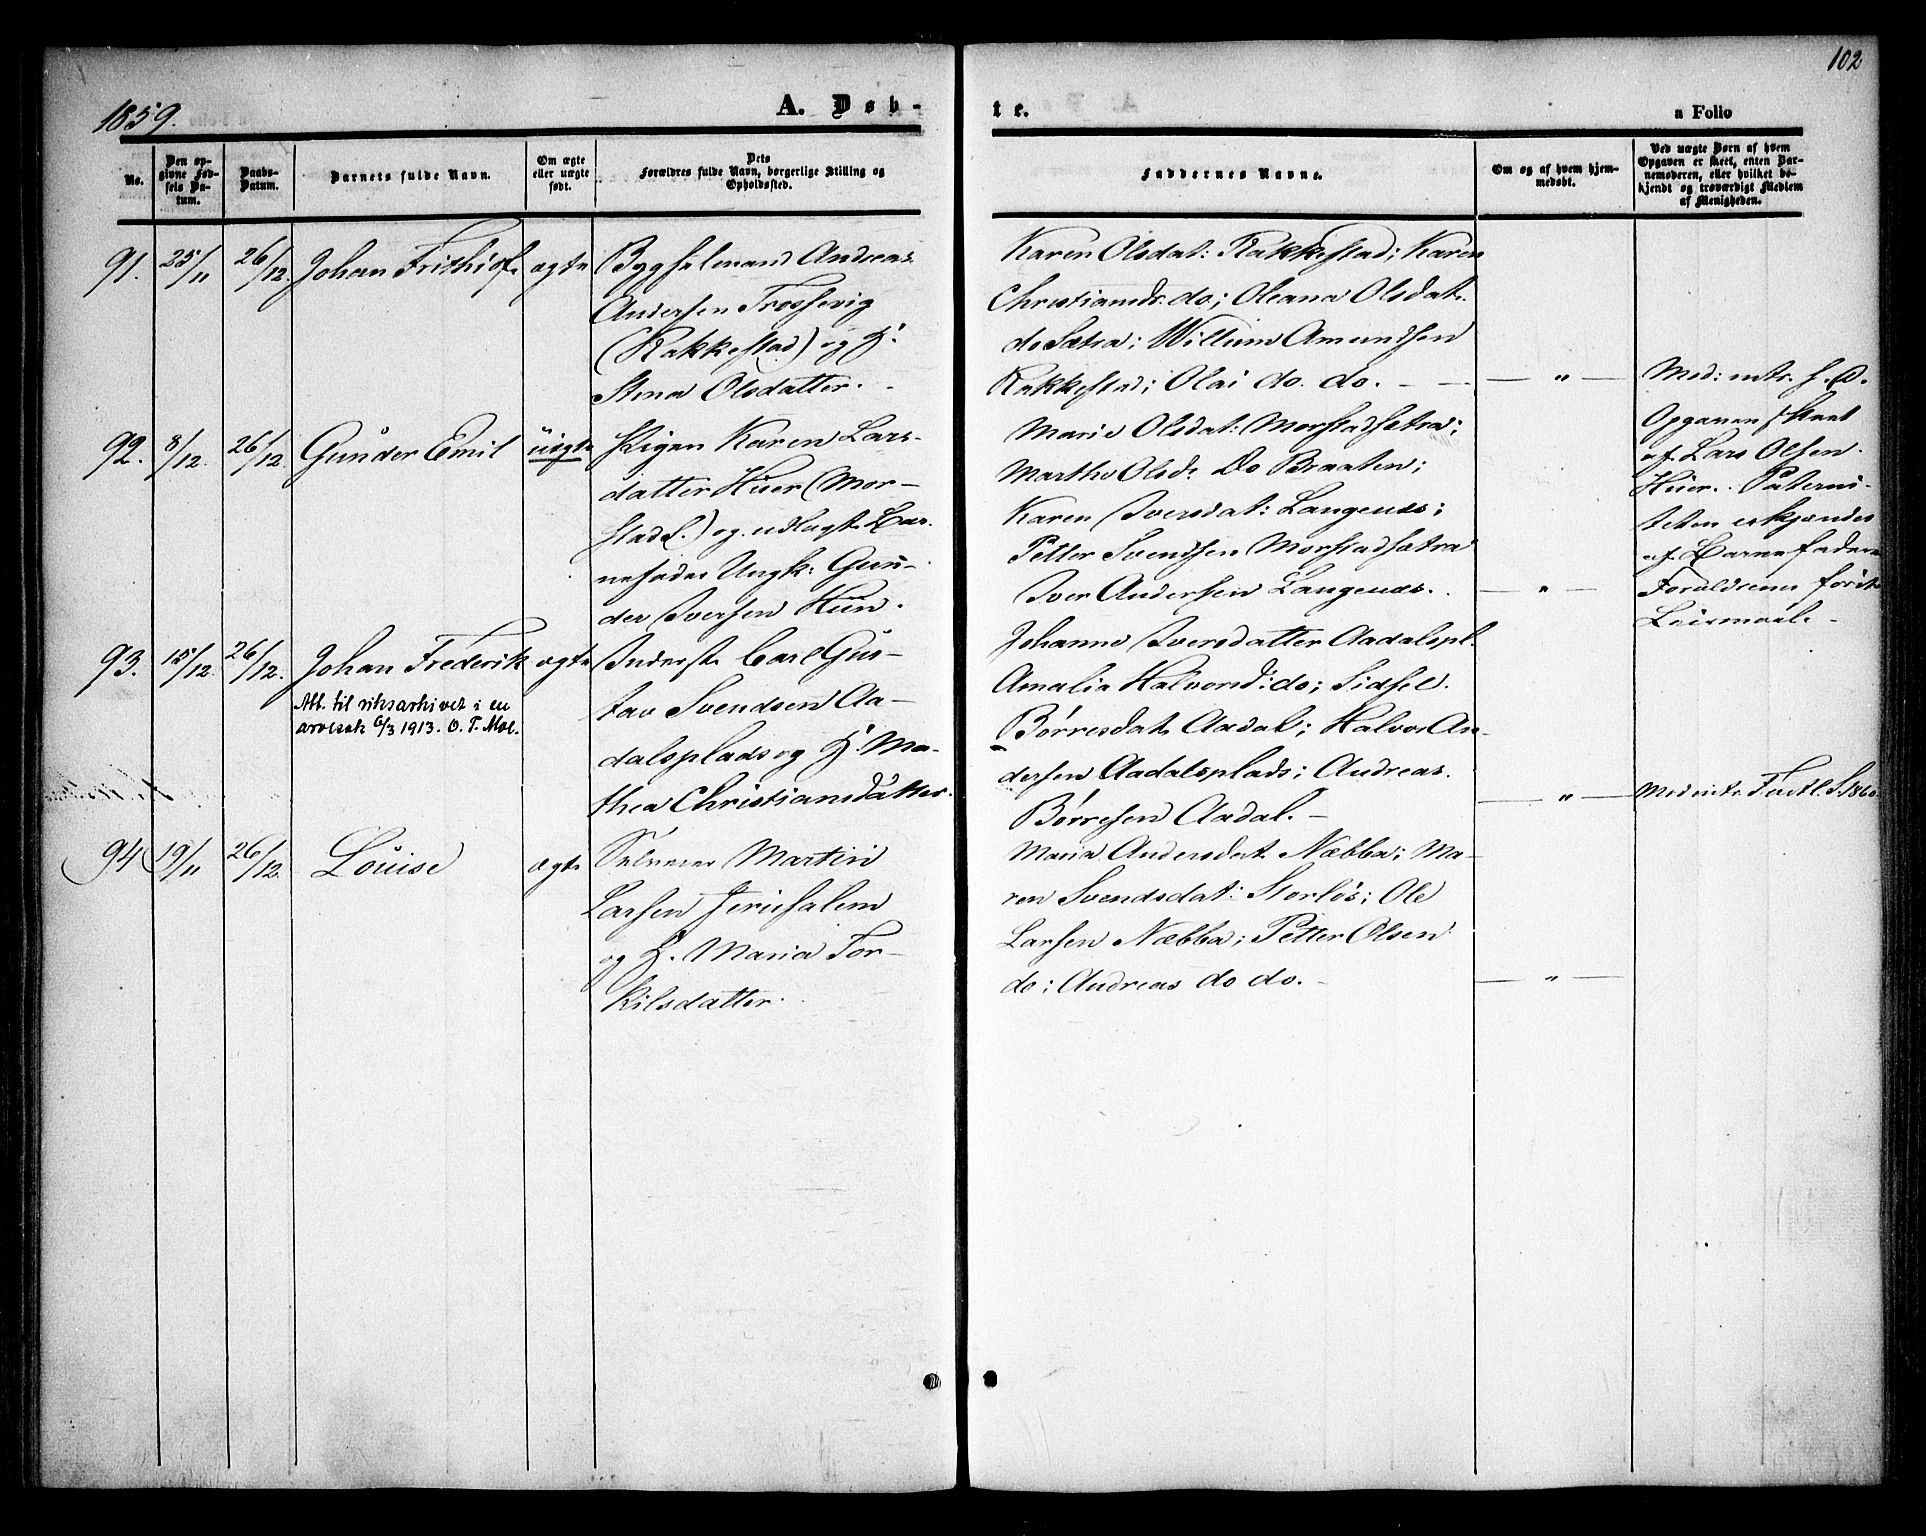 102
1859.
A. Døb-
te.
a Folio
No.
Den op-
givne Fød-
sels Da-
tum.
Daabs-
Datum.
Barnets fulde Navn.
Om ægte
eller uægte
født.
Dets
Forældres fulde Navn, borgerlige Stilling og
Opholdssted.
Faddernes Navne.
Om og af hvem hjem-
medøbt.
Ved uægte Børn af hvem
Opgaven er skeet, enten Bar-
nemoderen, eller hvilket be-
kjendt og troværdigt Medlem
af Menigheden.
91. 25/11 26/12. Johan Frithiof. ægte
Bygselmand Andreas
Andersen Trosvig
(Rakkestad) og H.
Stena Olsdatter.
Karen Olsdat: Rakkestad; Karen
Christiansdr. do; Oleana Olsdat.
do Sætra; Willum Amundsen
Rakkestad; Olai do. do. —
— " —
92. 8/12. 26/12. Gunder Emil uægte
Pigen Karen Lars-
datter Huer (Mor-
stad.) og udlagt Bar-
nefader Ungk: Gun-
der Iversen Huun.
Marie Olsdat: Morstadsætra;
Marthe Olsd: Do Braaten;
Karen Iversdat: Langenæs;
Petter Svendsen Morstadsætra
Iver Andersen Langenæs.
— " —
Opgaven skeet
af Lars Olsen
Huer. Paterni-
teten erkjendes
af Barnefaderen
Forældrenes første
Leiermaal. -
93. 15/12. 26/12. Johan Frederik ægte
Att. til riksarkivet i en
arvesak 6/3 1913. O. T. Moe.
Inderst Carl Gus-
tav Svendsen Aa-
dalsplads og H. Ma-
thea Christiansdatter.
Johanne Iversdatter Aadalspl.
Amalia Halvorsd: do; Sidsel
Børresdat. Aadal; Halvor An-
dersen Aadalsplads; Andreas
Børresen Aadal. —
— " —
94 19/11 26/12. Louise ægte
Selveier Martin
Larsen Jerusalem
og H. Maria Tor-
kilsdatter.
Maria Andersdat. Næbba; Ma-
ren Svendsdat: Storløs; Ole
Larsen Næbba; Petter Olsen
do; Andreas do do. -
— " —